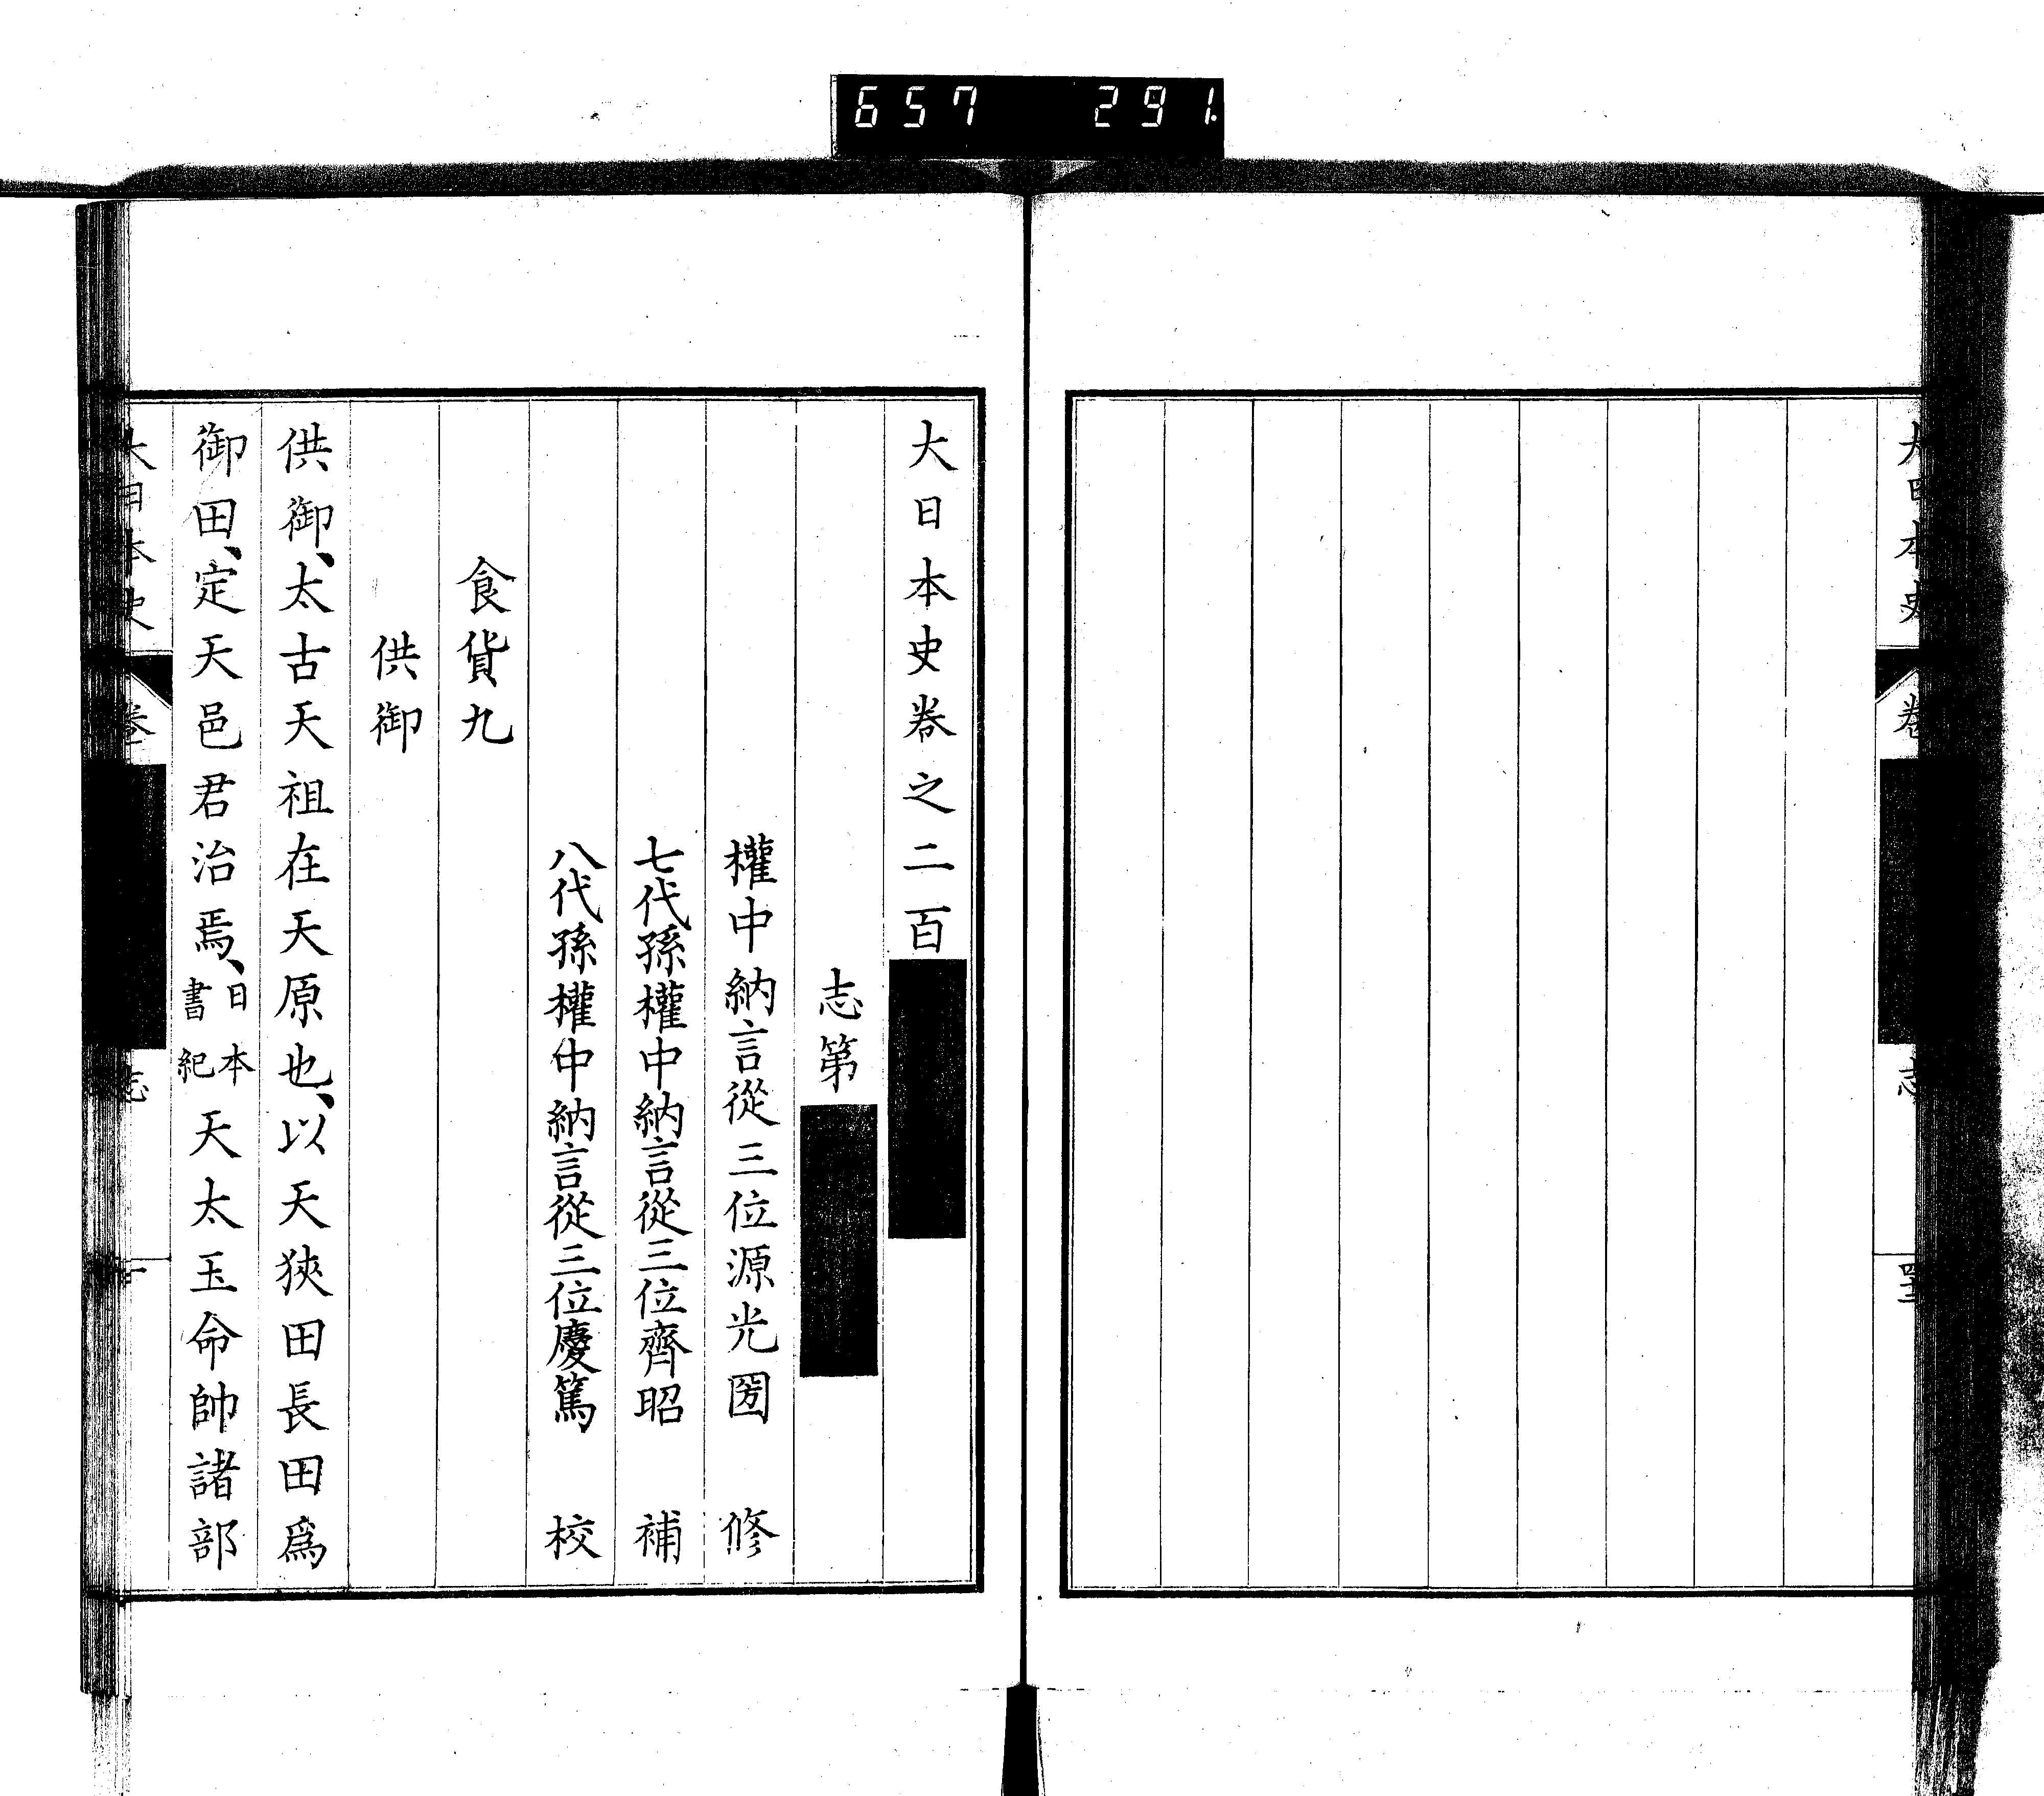 657 291
大日本史
卷
志
大日本史卷之二百
志第
權中納言從三位源光圀 修
七代孫權中納言從三位齊昭 補
八代孫權中納言從三位慶篤 校
食貨九
供御
供御、太古天祖在天原也、以天狹田長田爲
御田、定天邑君治焉、日本書紀天太玉命帥諸部
大日本史
卷
志